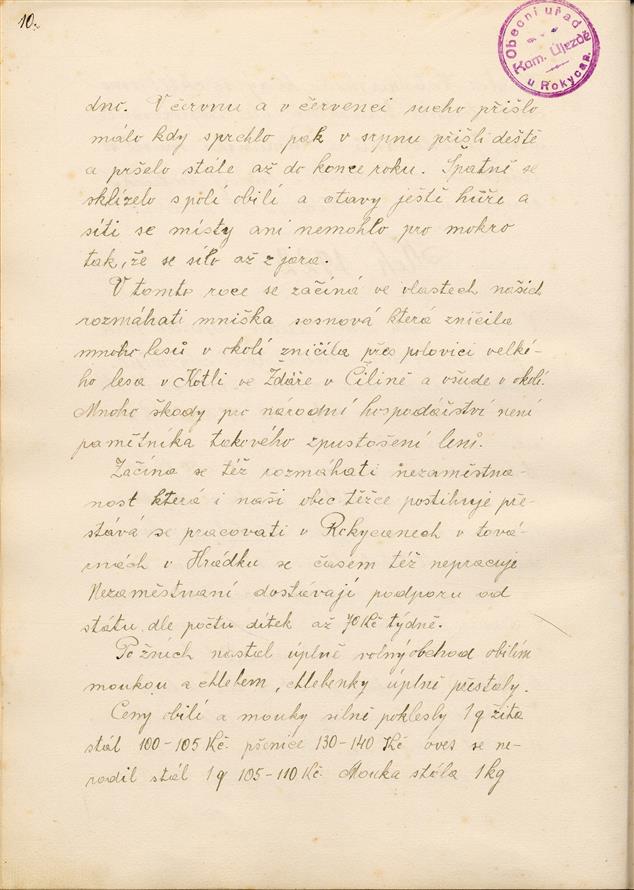 10.
Obecní uřad
Kam. Újezdě
u Rokycan.
dno. V červnu a v červenci sucho přišlo
málo kdy sprchlo pak v srpnu přišli deště
a pršelo stále až do konce roku. Špatně se
sklízelo s polí obilí a otavy ještě hůře a
síti se místy ani nemohlo pro mokro
tak, že se sílo až z jara.
V tomto roce se začíná ve vlastech našich
rozmáhati mniška sosnová která zničila
mnoho lesů v okolí zničila přes polovici velké-
ho lesa v Kotli ve Žďáře v Čilině a všude v okolí.
Mnoho škody pro národní hospodářství není
pamětníka takového zpustošení lesů.
Začína se též rozmáhati nezaměstna-
nost která i naši obec těžce postihuje pře-
stává se pracovati v Rokycanech v továr-
nách v Hrádku se časem též nepracuje
Nezaměstnaní dostávají podporu od
státu dle počtu dítek až 70 Kč týdně.
Po žních nastal úplně volný obchod obilím
moukou a chlebem, chlebenky úplně přestaly.
Ceny obilí a mouky silně poklesly 1 q žita
stál 100-105 Kč. pšenice 130-140 Kč oves se ne-
rodil stál 1 q 105-110 Kč. Mouka stála 1 kg